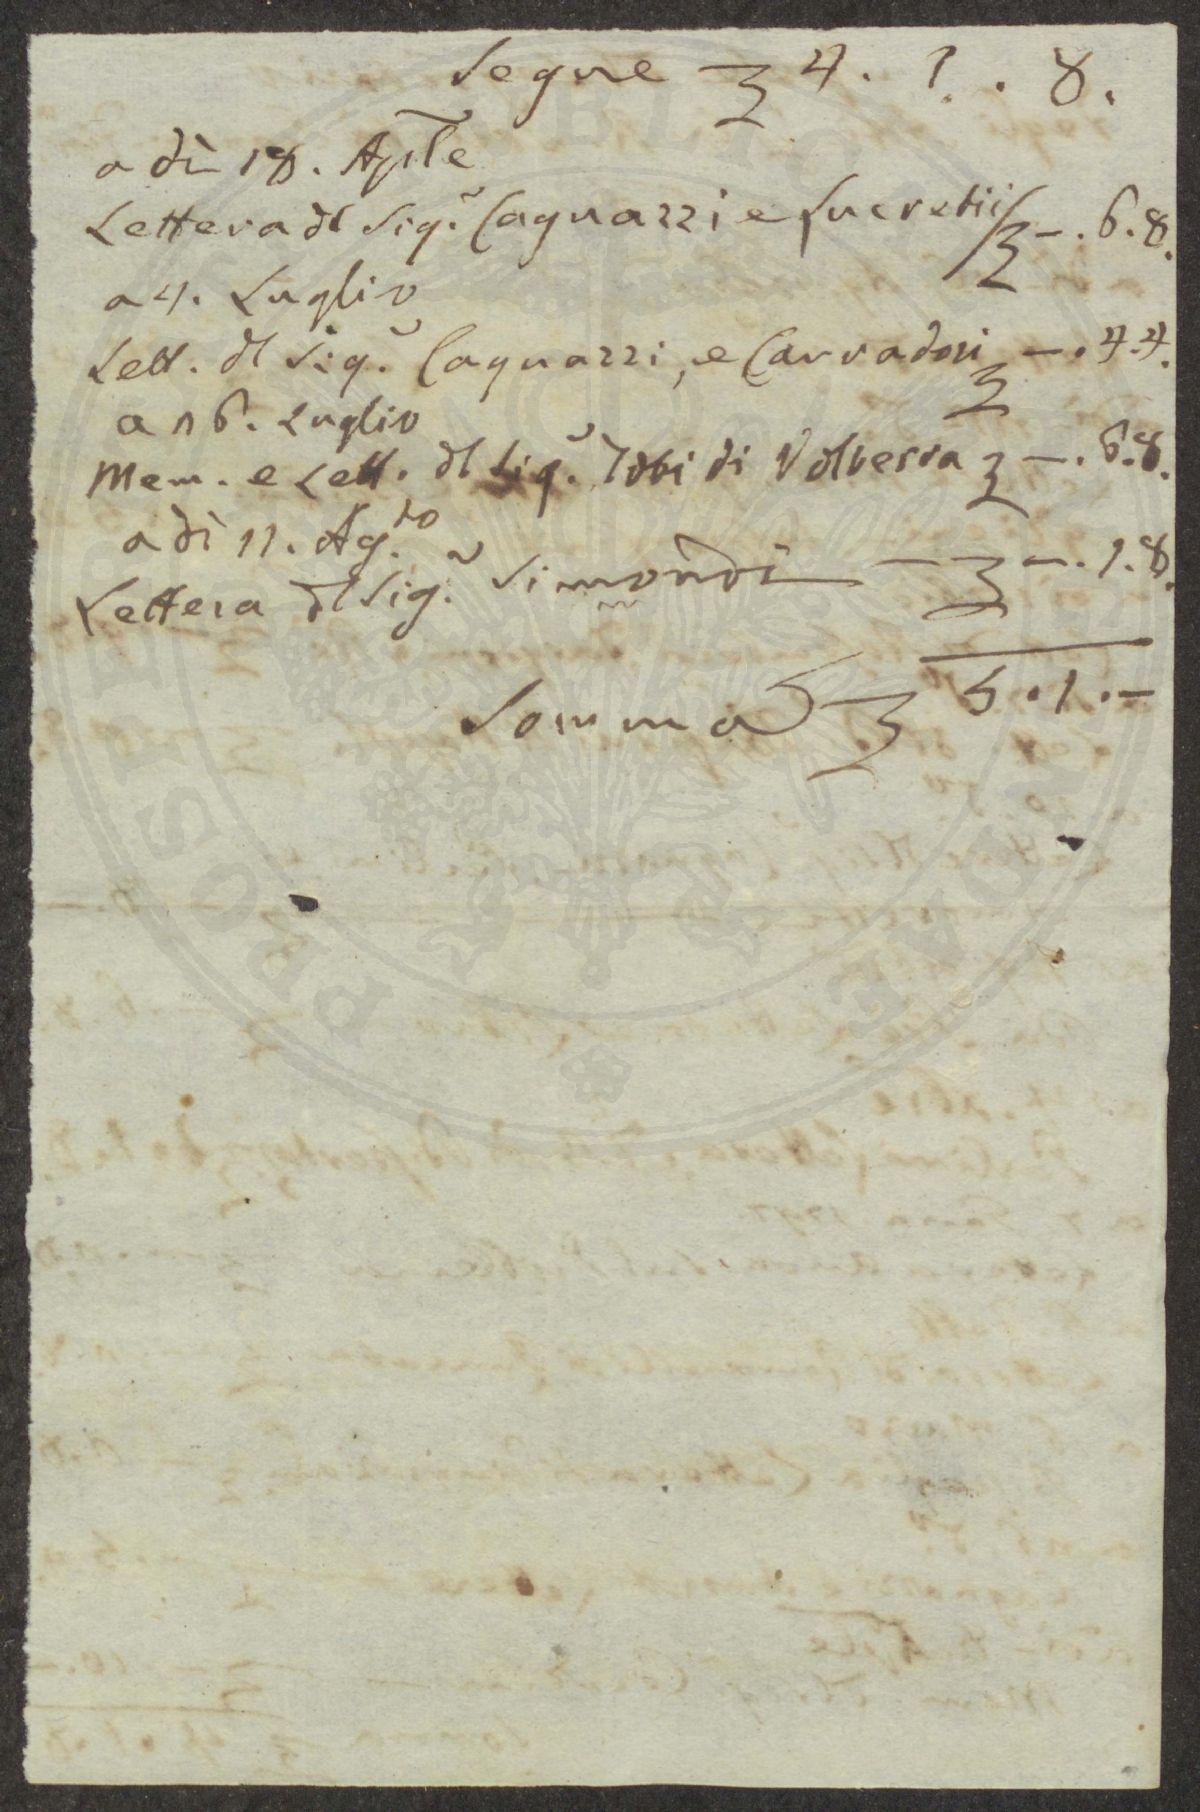 Segue ʒ 4. 1. 8.
a dì 18. Aple
Lettera dl Sig.r Cagnazzi e Lucretii ʒ -. 6. 8.
a 4. Luglio
Lett. dl Sig.r Cagnazzi, e Carradori ʒ -. 4. 4.
a 16. Luglio
Mem. e Lett. dl Sig.r Tobi di Volterra ʒ -. 6. 8.
a dì 11. Ag.to
Lettera dl Sig.r Simondi — ʒ -. 1. 8.
Somma ʒ 5. 1. -